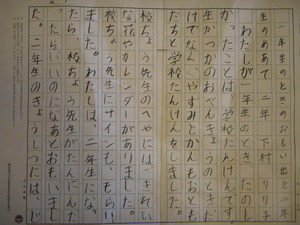 一年生のときのおもい出と二年
生のめあて 二年 下村 リリ子
わたしが一年生のとき、たのし
かったことは、学校たんけんです。
生かつかのおべんきょうのときだ
けでなく、やすみじかんもおとも
だちと学校たんけんをしました。
校ちょう先生のへやには、きれい
な花やカレンダーがありました。
校ちょう先生にサインも、もらい
ました。わたしは、二年生にな
たら、校ちょう先生がたんにんだ
たらいいのになあとおもいまし
た。二年生のきょうしつには、じ